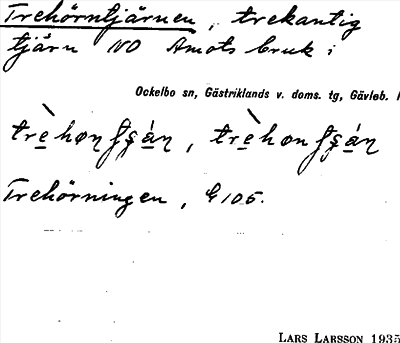 Trehörntjärnen, trekantig
tjärn NO Åmots bruk i
Ockelbo sn, Gästriklands v. doms. tg, Gävleb.
Trehörningen, G 105.
LARS LARSSON 1935